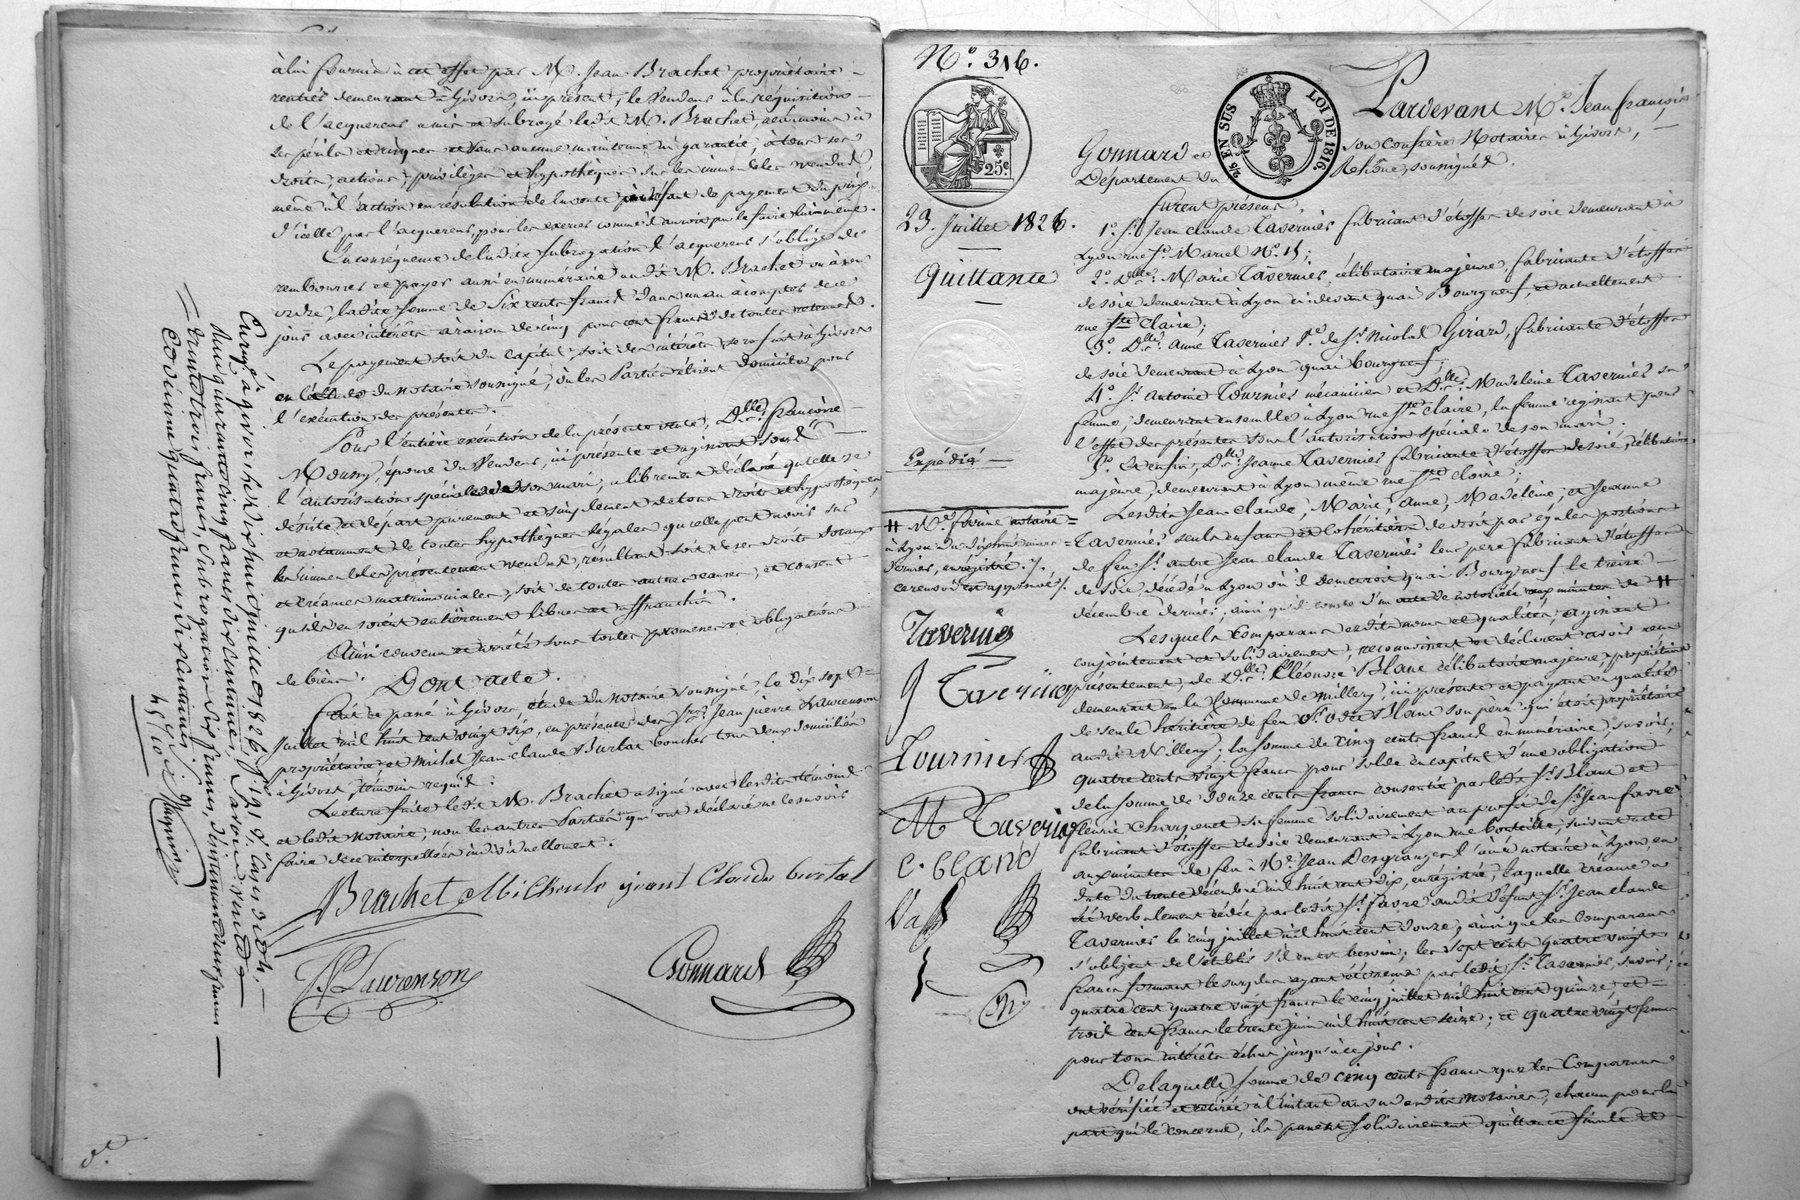 à lui fournie à cet effet par M. Jean Brachet propriétaire
rentier demeurant à Givors, ici présent, le vendeur à la réquisition
de l'acquereur a mis et subrogé ledit M. Brachet, néanmoins à
ses périls et risques et sans aucune maintenue ni garantie, à tous ses
droits, actions, privilèges et hypothèques sur les immeubles vendus,
même à l'action en résolution de la vente de payement du prix
d'icelle par l'acquereur, pour les exercer comme il auroit pu le faire lui même.
En conséquence de ladite subrogation l'acquereur s'oblige de
rembourser et payer aussi en numéraire audit M. Brachet ou à son
ordre, ladite somme de Six cents francs dans un an à compter de ce
jour avec intérêts à raison de cinq pour cent francs de toutes retenues.
Le payement soit du capital, soit des intérêts, sera fait à Givors
en l'étude du notaire soussigné, où les Parties élisent domicile pour
l'exécution des présentes.
Pour l'entière exécution de la présente vente, Dlle françoise
Mousny, épouse du Vendeur, ici présente et agissant sous
l'autorisation spéciale de son mari, a librement déclaré qu'elle se
désiste et départ purement et simplement de tous droits et hypothèques
et notamment de toutes hypothèques légales qu'elle peut avoir sur
les immeubles présentement vendus, résultant soit de ses droits dotaux
et créances matrimoniales, soit de toutes autres causes, et consent
qu'ils en soient entièrement libres et affranchis.
Ainsi convenu et arrêté sous toutes promesses et obligations
de biens. Dont acte.
fait et passé à Givors étude du notaire soussigné, le dix sept
Juillet mil huit cent vingt six, en présence des Srs Jean pierre Lawrenson
propriétaire et Michel Jean claude Burlat boucher tous deux domiciliés
à Givors, témoins requis.
Lecture faite ledit M. Brachet a signé avec lesdits témoins
et ledit notaire, non les autres Parties qui ont déclaré ne le savoir
faire de ce interpellées individuellement.
Brachet Michel jean Claude burlat
JP Lawrenson
Gonnard
Enregé à givors le dix huit juillet 1826 f° 191 V° Cases
Reçu quarante cinq francs dix centimes,
trente trois francs, subrogation six francs,
Codixime quatre francs dix centimes.
45 10
N° 316.
25c
2/5 EN SUS
LOI DE 1816
23. Juillet 1826.
Quittance
Expédié
# Me ferrine notaire
à Lyon du dix huit mars
dernier, enregistré.
ce renvoi est approuvé
Tavernier
J Tavernier
Tournier
M Tavernier
C. bland
Va
Pardevant Me Jean françois
Gonnard et son Confrère Notaires à Givors,
Département du Rhône, soussignés.
furent présens
1° Sr Jean claude Tavernier fabricant d'étoffes de soie demeurant à
Lyon rue St Marcel N° 15;
2° Dlle Marie Tavernier, célibataire majeure, fabricante d'étoffes
de soie demeurant à Lyon ci-devant quai Bourgneuf, et actuellement
rue Ste Claire;
3° Dlle Anne Tavernier Ve de Sr Nicolas Girard, fabricante d'étoffes
de soie demeurant à Lyon quai bourgneuf;
4° Sr Antoine Tournier mécanicien et Dlle Madeleine Tavernier sa
femme, demeurant ensemble à Lyon rue Ste claire, la femme agissant pour
l'effet des présentes sous l'autorisation spéciale de son mari.
5° Et enfin, Dlle Jeanne Tavernier fabricante d'étoffes de soie, célibataire
majeure, demeurant à Lyon même rue Ste Claire;
Lesdits Jean claude, Marie, Anne, Madeleine, et Jeanne
Tavernier seuls enfans et Cohéritiers de droit par égales portions
de feu Sr autre Jean claude Tavernier leur père fabricant d'étoffes
de soie, décédé à Lyon où il demeuroit quai Bourgneuf le treize
décembre dernier, ainsi qu'il conste d'un acte de notoriété aux minutes de #
Lesquels Comparans esdits noms et qualités, agissant
conjointement et solidairement, reconnoissent et déclarent avoir reçu
présentement, de Dlle Eléonore Blanc célibataire majeure, propriétaire
demeurant en la Commune de Millery, ici présente et payant en qualité
de seule héritière de feu Sr odet Blanc son père qui étoit propriétaire
audit Millery, la somme de cinq cents francs en numéraire, savoir,
quatre cents vingt francs pour solde en capital d'une obligation
de la somme de douze cents francs consentie par ledit Sr Blanc et
fleurie Charpenet sa femme solidairement au profit de Sr Jean favre
fabricant d'étoffes de soie demeurant à Lyon rue bouteille, suivant acte
aux minutes de feu Me Jean Desgranges l'ainé notaire à Lyon, en
date du trente décembre mil huit cent dix, enregistré, laquelle créance a
été verbalement cédée par ledit Sr favre audit défunt Sr Jean claude
Tavernier le cinq juillet mil huit cent douze, ainsi que les Comparans
s'obligent de l'établir s'il en est besoin; les sept cents quatre vingts
francs formant le surplus ayant été reçus par ledit Sr Tavernier, savoir;
quatre cent quatre vingt francs le cinq juillet mil huit cent quinze, et
trois cent francs le trente juin mil huit cent seize; et quatre vingt francs
pour tous intérêts échus jusqu'à ce jour.
De laquelle somme de cinq cents francs que les Comparans
ont vérifiée et retirée à l'instant au vu desdits Notaires, chacun pour la
part qui le concerne, ils passent solidairement quittance finale et